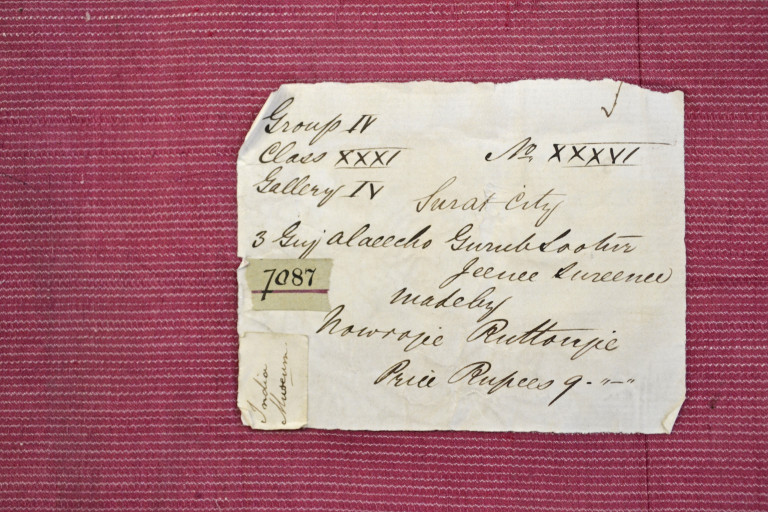 Group IV
Class XXXI
No XXXVI
Gallery IV
Surat City
3 Guj alaeecho Gurub Sootur
Jeenee Sureenee
7087
made by
Nowrojie Ruttonjie
Price Rupees 9-"-"
India
Museum